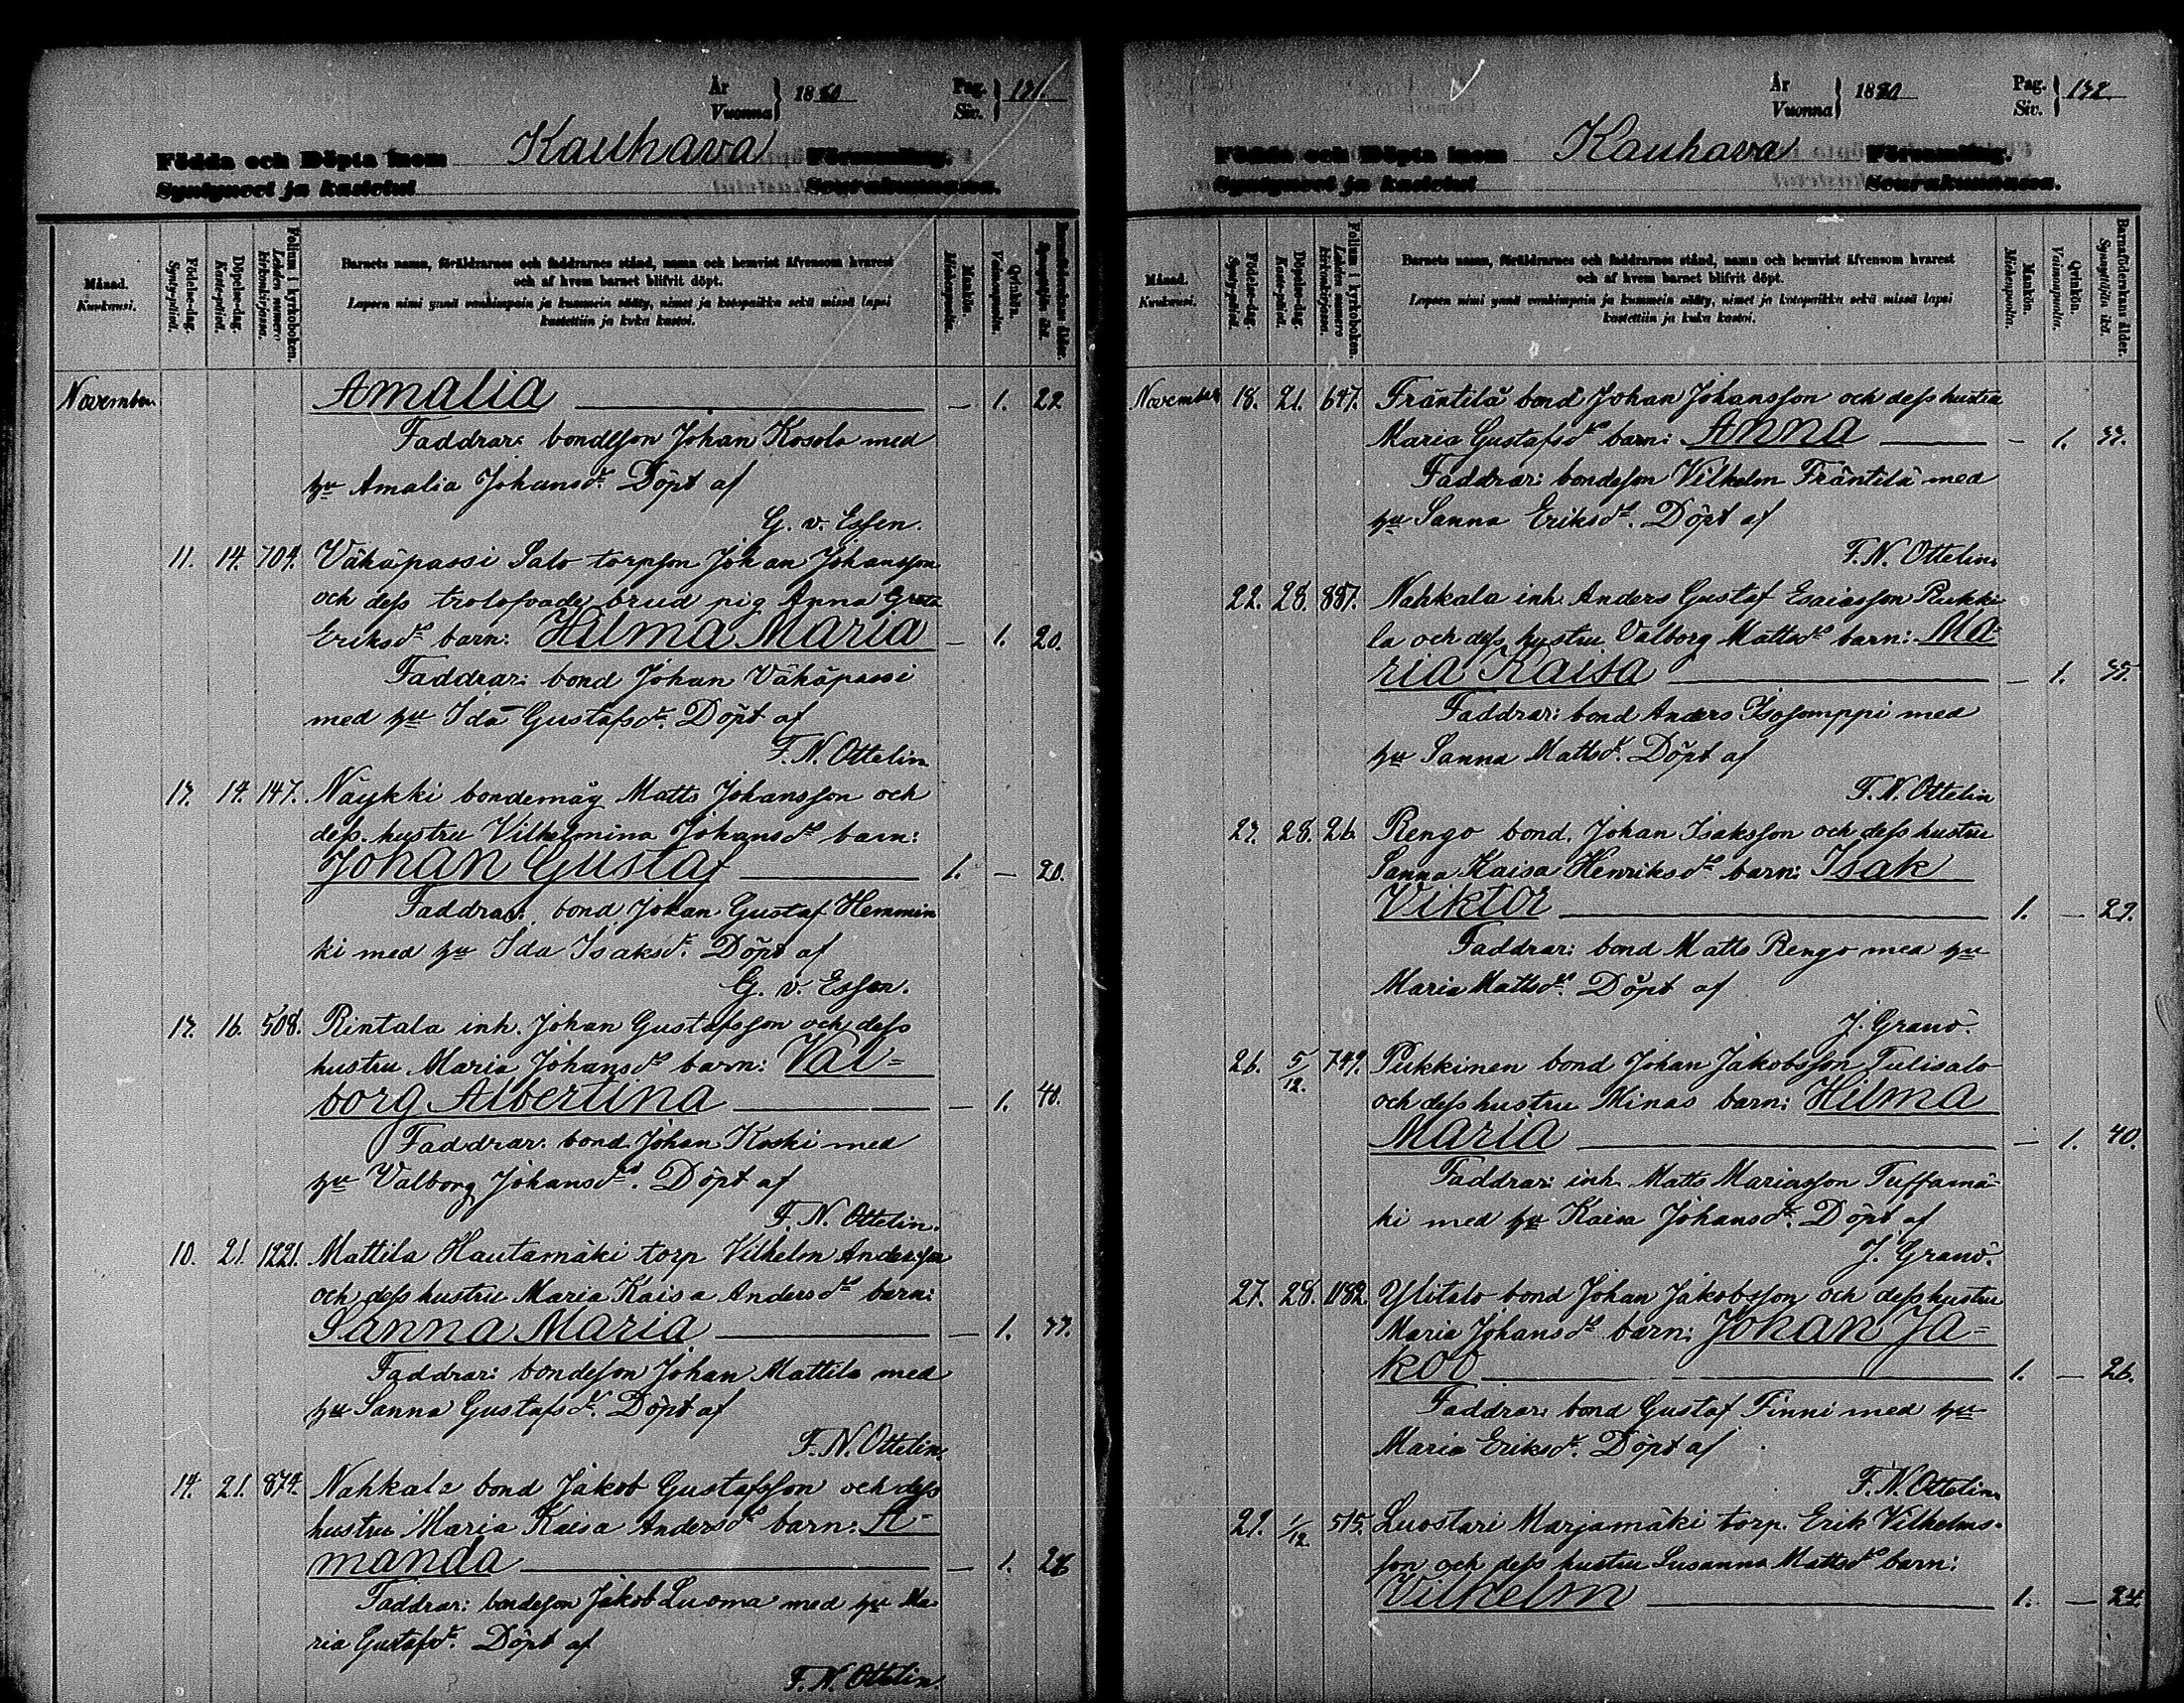 År
Vuonna } 1880 Pag.
Siv. } 131.
Födda och Döpta inom Kauhava Församling.
Syntyneet ja kastetut Seurakunnassa.
Månad.
Kuukausi.
Födelse-dag.
Synty-päivä.
Döpelse-dag.
Kaste-päivä.
Folium i kyrkoboken.
Lehden numero kirkonkirjassa.
Barnets namn, föräldrarnes och faddrarnes stånd, namn och hemvist äfvensom hvarest
och af hvem barnet blifvit döpt.
Lapsen nimi ynnä vanhimpain ja kummein sääty, nimet ja kotopaikka sekä missä lapsi
kastettiin ja kuka kastoi.
Mankön.
Miehenpuolia.
Qvinkön.
Vaimonpuolia.
Barnaföderskans ålder.
Synnyttäjän ikä.
November Amalia — 1. 22
Faddrar: bondeson Johan Kosola med
hu Amalia Johansdr. Döpt af
G. v. Essen.
11. 14. 704. Vähäpassi Salo torpson Johan Johansson
och dess trolofvade brud pig Anna Greta
Eriksdr barn: Hilma Maria — 1. 20.
Faddrar: bond Johan Vähäpassi
med hu Ida Gustafsdr. Döpt af
F. N. Ottelin
13. 14. 147. Näykki bondemåg Matts Johansson och
dess hustru Vilhelmina Johansdr barn:
Johan Gustaf 1. — 20.
Faddrar: bond Johan Gustaf Hemmin
ki med hu Ida Isaksdr. Döpt af
G. v. Essen.
13. 16. 508. Rintala inh. Johan Gustafsson och dess
hustru Maria Johansdr barn: Val-
borg Albertina — 1. 40.
Faddrar: bond Johan Koski med
hu Valborg Johansdr. Döpt af
F. N. Ottelin.
10. 21. 1221. Mattila Hautamäki torp Vilhelm Andersson
och dess hustru Maria Kaisa Andersdr barn:
Sanna Maria — 1. 37.
Faddrar: bondeson Johan Mattila med
hu Sanna Gustafsdr. Döpt af
F. N. Ottelin.
14. 21. 874. Nahkala bond Jakob Gustafsson och dess
hustru Maria Kaisa Andersdr barn: A-
manda — 1. 26
Faddrar: bondeson Jakob Luoma med hu Ma
ria Gustafsdr. Döpt af
F. N. Ottelin.
År
Vuonna } 1880 Pag.
Siv. } 132.
Födda och Döpta inom Kauhava Församling.
Syntyneet ja kastetut Seurakunnassa.
Månad.
Kuukausi.
Födelse-dag.
Synty-päivä.
Döpelse-dag.
Kaste-päivä.
Folium i kyrkoboken.
Lehden numero kirkonkirjassa.
Barnets namn, föräldrarnes och faddrarnes stånd, namn och hemvist äfvensom hvarest
och af hvem barnet blifvit döpt.
Lapsen nimi ynnä vanhimpain ja kummein sääty, nimet ja kotopaikka sekä missä lapsi
kastettiin ja kuka kastoi.
Mankön.
Miehenpuolia.
Qvinkön.
Vaimonpuolia.
Barnaföderskans ålder.
Synnyttäjän ikä.
November 18. 21. 647. Fräntilä bond Johan Johansson och dess hustru
Maria Gustafsdr barn: Anna — 1. 37.
Faddrar: bondeson Vilhelm Fräntilä med
hu Sanna Eriksdr. Döpt af
F. N. Ottelin.
22. 28. 887. Nahkala inh. Anders Gustaf Esaiasson Rukki
la och dess hustru Valborg Mattsdr barn: Ma-
ria Kaisa — 1. 35.
Faddrar: bond Anders Isosomppi med
hu Sanna Mattsdr. Döpt af
F. N. Ottelin
27. 28. 26. Rengo bond. Johan Isaksson och dess hustru
Sanna Kaisa Henriksdr barn: Isak
Viktor 1. — 29.
Faddrar: bond Matts Rengo med hu
Maria Mattsdr. Döpt af
J. Granö.
26. 5/12. 749. Pukkinen bond Johan Jakobsson Tulisalo
och dess hustru Minas barn: Hilma
Maria — 1. 40.
Faddrar: inh. Matts Mariasson Tuffamä-
ki med hu Kaisa Johansdr. Döpt af
J. Granö.
27. 28. 1182. Ylitalo bond Johan Jakobsson och dess hustru
Maria Johansdr barn: Johan Ja-
kob 1. — 26.
Faddrar: bond Gustaf Finni med hu
Maria Eriksdr. Döpt af
F. N. Ottelin.
29. 1/12. 515. Luostari Marjamäki torp. Erik Vilhelms-
son och dess hustru Susanna Mattsdr barn:
Vilhelm 1. — 24.